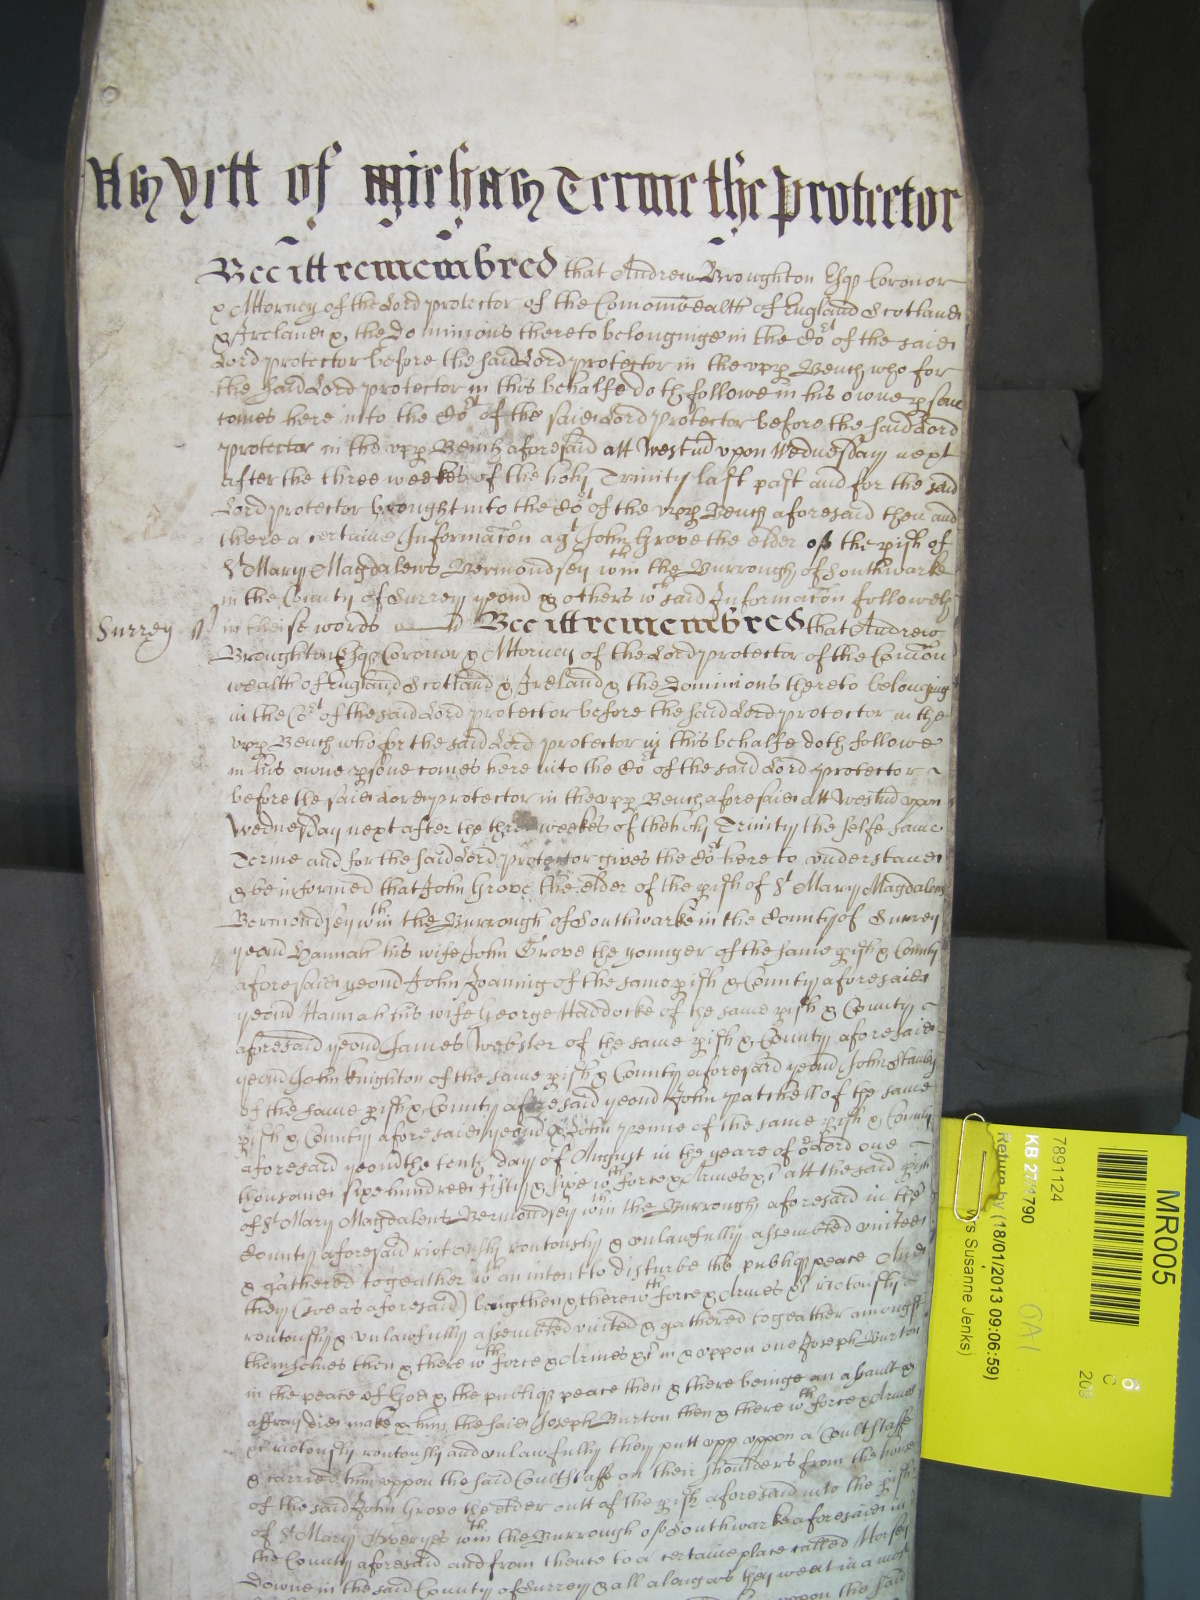 As yett of Michas Terme the Protector
Bee itt remembred that Andrew Broughton Esq Coronor
& Attorney of the Lord protector of the Comonwealth of England Scotland
& Ireland & the Dominions thereto belonginge in the Cort of the said
Lord protector before the said Lord protector in the vpp Bench who for
the said Lord protector in this behalfe doth followe in his owne pson
comes here into the Cort of the said Lord protector before the said Lord
protector in the vpp Bench aforesaid att Westmr vpon Wednesday next
after the three weekes of the holy Trinity last past and for the said
Lord protector brought into the Cort of the vpp Bench aforesaid then and
there a certaine Informacon agt John Grove the elder of the pish of
St Mary Magdalens Bermondsey wthin the Burrough of Southwarke
in the County of Surrey yeom & others wch said Informacon followeth
Surrey ss in theise words Bee itt remembred that Andrew
Broughton Esq Coronor & Attorney of the Lord protector of the Comon
wealth of England Scotland & Ireland & the Dominions thereto belonging
in the Cort of the said Lord protector before the said Lord protector in the
vpp Bench who for the said Lord protector in this behalfe doth followe
in his owne psone comes here into the Cort of the said Lord protector
before the said Lord protector in the vpp Bench aforesaid att Westmr vpon
Wednesday next after the three weekes of the holy Trinity the selfe same
Terme and for the said Lord protector gives the Cort here to vnderstand
& be informed that John Grove the elder of the pish of St Mary Magdalens
Bermondsey wthin the Burrough of Southwarke in the County of Surrey
yeom Hannah his wife John Grove the younger of the same pish & County
aforesaid yeom John Joaning of the same pish & County aforesaid
yeom Hannah his wife George Haddocke of the same pish & County
aforesaid yeom James Webster of the same pish & County aforesaid
yeom John Knighton of the same pish & County aforesaid yeom John Stanly
of the same pish & County aforesaid yeom John patchell of the same
pish & County aforesaid yeom & John penne of the same pish & County
aforesaid yeom the tenth day of August in the yeare of or Lord one
thousand sixe hundred fifty & sixe wth force & Armes &c att the said pish
of St Mary Magdalens Bermondsey wthin the Burrough aforesaid in the
County aforesaid riotously routously & vnlawfully assembled vnited
& gathered togeather wth an intent to disturbe the publiq peace And
they (soe as aforesaid) being then & there wth force & Armes &c riotously
routously & vnlawfully assembled vnited & gathered togeather amongst
themselves then & there wth force & Armes &c in & vppon one Joseph Burton
in the peace of God & the publiq peace then & there beinge an assault &
affray did make & him the said Joseph Burton then & there wth force & Armes
&c riotously routously and vnlawfully they putt vpp vppon a Coultstaffe
& carried him vppon the said Coultstaffe on their shoulders from the house
of the said John Grove the elder outt of the pish aforesaid into the pish
of St Mary Overyes wthin the Burrough of Southwarke aforesaid in
the County aforesaid and from thence to a certaine place called Horsey
Downe in the said County of Surrey & all along as they went in a most
vppon the said
MR005
7891124
KB 27/1790
Return by (18/01/2013 09:06:59)
s Susanne Jenks)
GA1
6
C